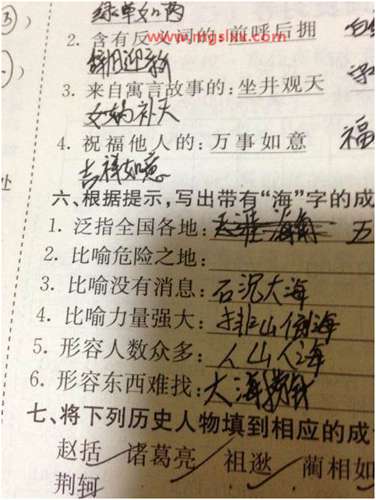 绿草如茵
2. 含有反义词的:前呼后拥
www.mgslw.com
辞旧迎新
3. 来自寓言故事的:坐井观天
女娲补天
4. 祝福他人的:万事如意 福
吉祥如意
六、根据提示,写出带有“海”字的成
1. 泛指全国各地: 五
2. 比喻危险之地:
3. 比喻没有消息:石沉大海
4. 比喻力量强大:排山倒海
5. 形容人数众多:人山人海
6. 形容东西难找:大海捞针
七、将下列历史人物填到相应的成
赵括 诸葛亮 祖逖 蔺相如
荆轲